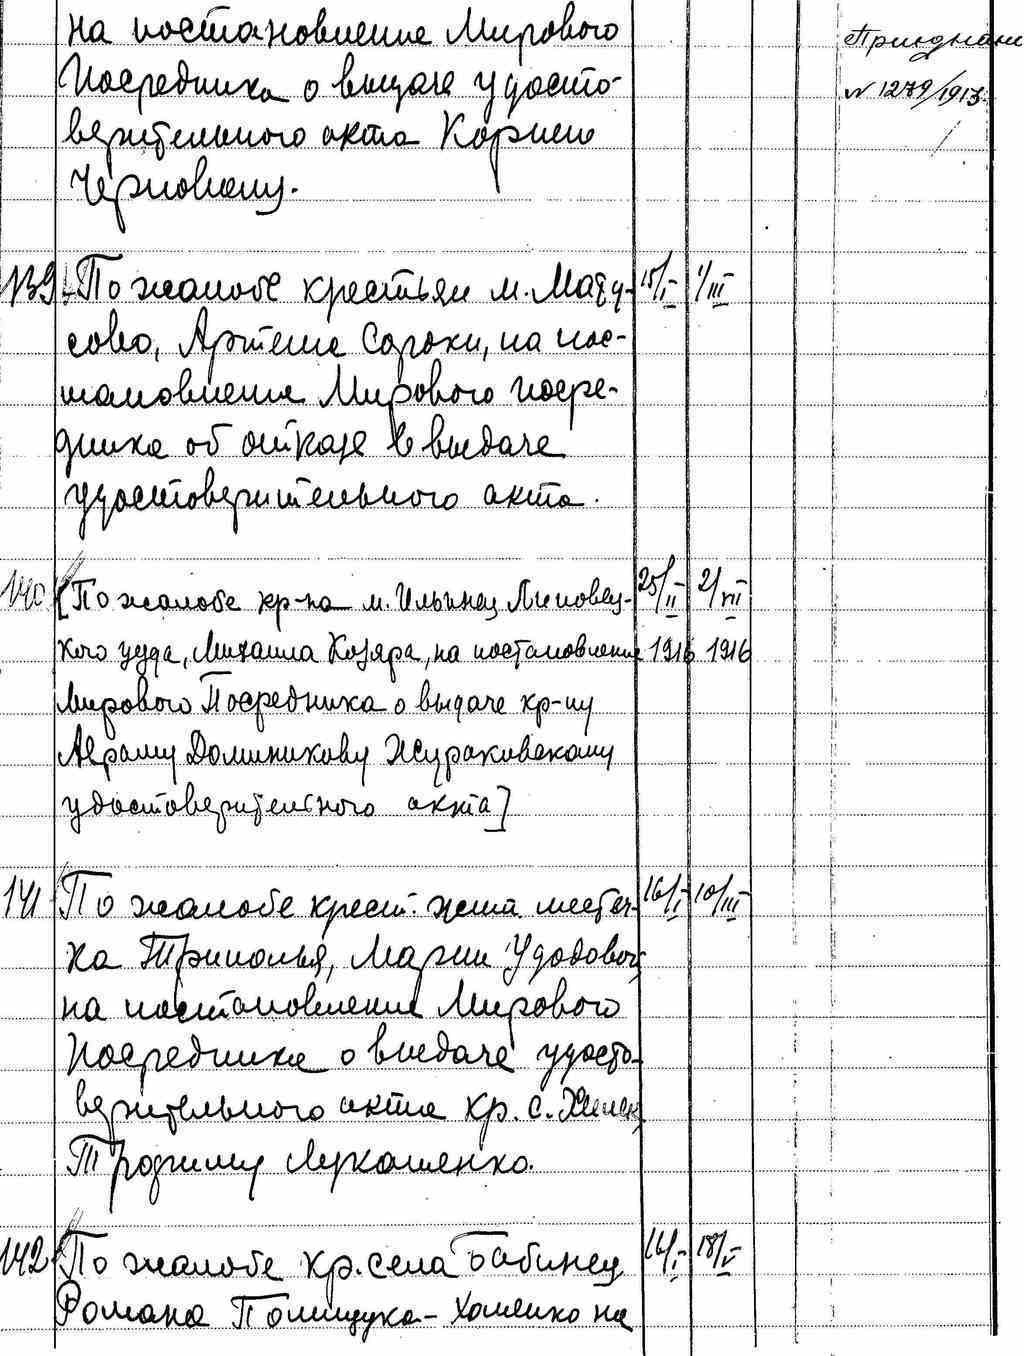 на постановление Мирового
Посредника о выдаче удосто-
верительного акта Корнею
Черновому.
Приєднане
N 1279/1913
139 По жалобе крестьян м. Матусово, 15/I 1/III
сово, Артема Сороки, на пос-
тановление Мирового посре-
дника об отказе в выдаче
удостоверительного акта.
140 [По жалобе кр-на м. Ильинец Липовец- 25/II 2/VII
кого уезда, Михаила Козяра, на постановление 1916 1916
Мирового Посредника о выдаче кр-ну
Авраму Доминикову Жураковскому
удостоверительного акта]
141 По жалобе крест. жит. местеч- 16/I 10/III
ка Триполья, Марии Удодовой
на постановление Мирового
Посредника о выдаче удосто-
верительного акта кр. с.
Трофиму Лукашенко.
142 По жалобе кр. села Бабинец 16/I 18/V
Романа Полищука-Хоменко на